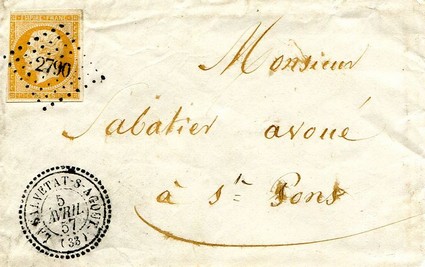 EMPIRE FRANC.
2790
Monsieur
Sabatier avoué
à St. Pons
LA SALVETAT-S-AGOUT
5
AVRIL
57
(33)